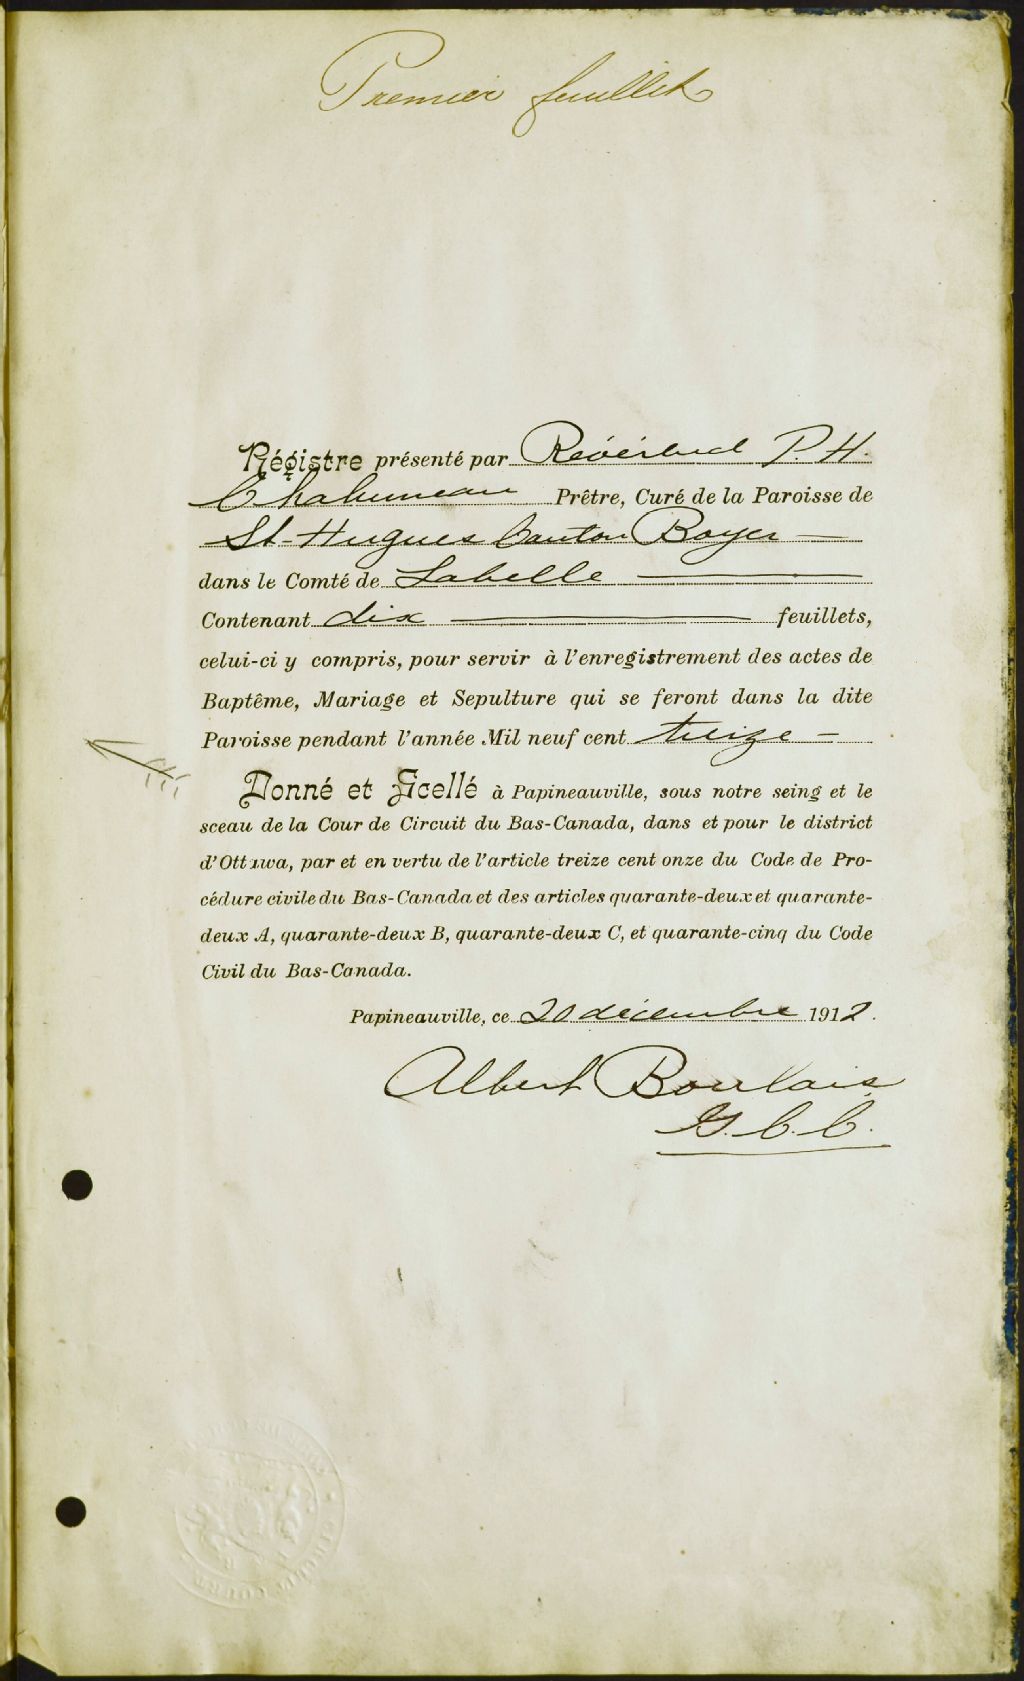 Premier feuillet
Régistre présenté par Révérend P. H.
Chabuneau Prêtre, Curé de la Paroisse de
St-Hugues Canton Boyer
dans le Comté de Labelle
Contenant dix feuillets,
celui-ci y compris, pour servir à l'enregistrement des actes de
Baptême, Mariage et Sepulture qui se feront dans la dite
Paroisse pendant l'année Mil neuf cent treize
Donné et Scellé à Papineauville, sous notre seing et le
sceau de la Cour de Circuit du Bas-Canada, dans et pour le district
d'Ottawa, par et en vertu de l'article treize cent onze du Code de Pro-
cédure civile du Bas-Canada et des articles quarante-deux et quarante-
deux A, quarante-deux B, quarante-deux C, et quarante-cinq du Code
Civil du Bas-Canada.
Papineauville, ce 20 décembre 1912.
Albert Bourlais
G. C. C.
CIRCUIT COURT